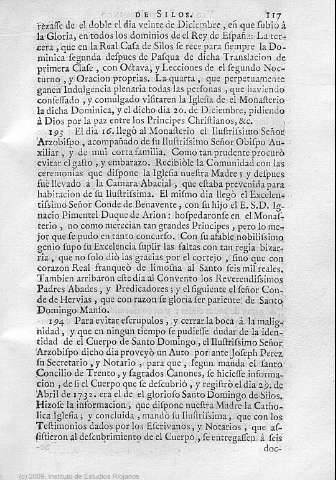 DE SILOS. 117
rezasse de el doble el dia veinte de Diciembre, en que subió à
la Gloria, en todos los dominios de el Rey de España: La ter-
cera, que en la Real Casa de Silos se rece para siempre la Do-
minica segunda despues de Pasqua de dicha Translacion de
primera Clase, con Octava, y Lecciones de el segundo Noc-
turno, y Oracion proprias. La quarta, que perpetuamente
ganen Indulgencia plenaria todas las personas, que haviendo
confessado, y comulgado visitaren la Iglesia de el Monasterio
la dicha Dominica, y el dicho dia 20. de Diciembre, pidiendo
à Dios por la paz entre los Principes Christianos, &c.
193 El dia 16. llegó al Monasterio el Ilustrissimo Señor
Arzobispo, acompañado de su Ilustrissimo Señor Obispo Au-
xiliar, y de mui corta familia. Como tan prudente procuró
evitar el gasto, y embarazo. Recibióle la Comunidad con las
ceremonias que dispone la Iglesia nuestra Madre; y despues
fue llevado à la Camara Abacial, que estaba prevenida para
habitacion de su Ilustrissima. El mismo dia llegó el Excelen-
tissimo Señor Conde de Benavente, con su hijo el E. S. D. Ig-
nacio Pimentel Duque de Arion: hospedaronse en el Monas-
terio, no como merecian tan grandes Principes, pero lo me-
jor que se pudo en tanto concurso. Con su afable nobilissimo
genio supo su Excelencia suplir las faltas con tan regia bizar-
ria, que no solo dió las gracias por el cortejo, sino que con
corazon Real franqueó de limosna al Santo seis mil reales.
Tambien arribaron este dia al Convento los Reverendissimos
Padres Abades, y Predicadores; y el siguiente el señor Con-
de de Hervias, que con razon se gloria ser pariente de Santo
Domingo Manso.
194 Para evitar escrupulos, y cerrar la boca à la malig-
nidad, y que en ningun tiempo se pudiesse dudar de la iden-
tidad de el Cuerpo de Santo Domingo, el Ilustrissimo Señor
Arzobispo dicho dia proveyó un Auto por ante Joseph Perez
su Secretario, y Notario, para que, segun manda el santo
Concilio de Trento, y sagrados Canones, se hiciesse informa-
cion, de si el Cuerpo que se descubrió, y registró el dia 29. de
Abril de 1732. era el de el glorioso Santo Domingo de Silos.
Hizose la informacion, que dispone nuestra Madre la Catho-
lica Iglesia, y concluida, mandó su Ilustrissima, que con los
Testimonios dados por los Escrivanos, y Notarios, que as-
sistieron al descubrimiento de el Cuerpo, se entregassen à seis
doc-
(c) 2009, Instituto de Estudios Riojanos